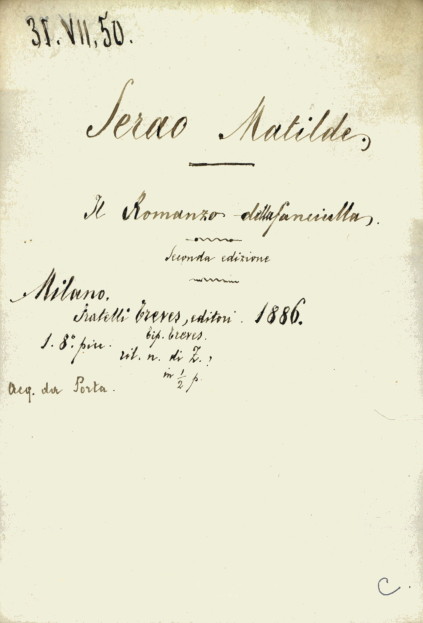 31.VII.50.
Serao Matilde.
Il Romanzo della fanciulla.
Seconda edizione
Milano.
Fratelli Treves, editori. 1886.
tip. Treves.
1. 8° picc.
ril. n. di Z.
in 1/2 p.
acq. da Porta.
C.